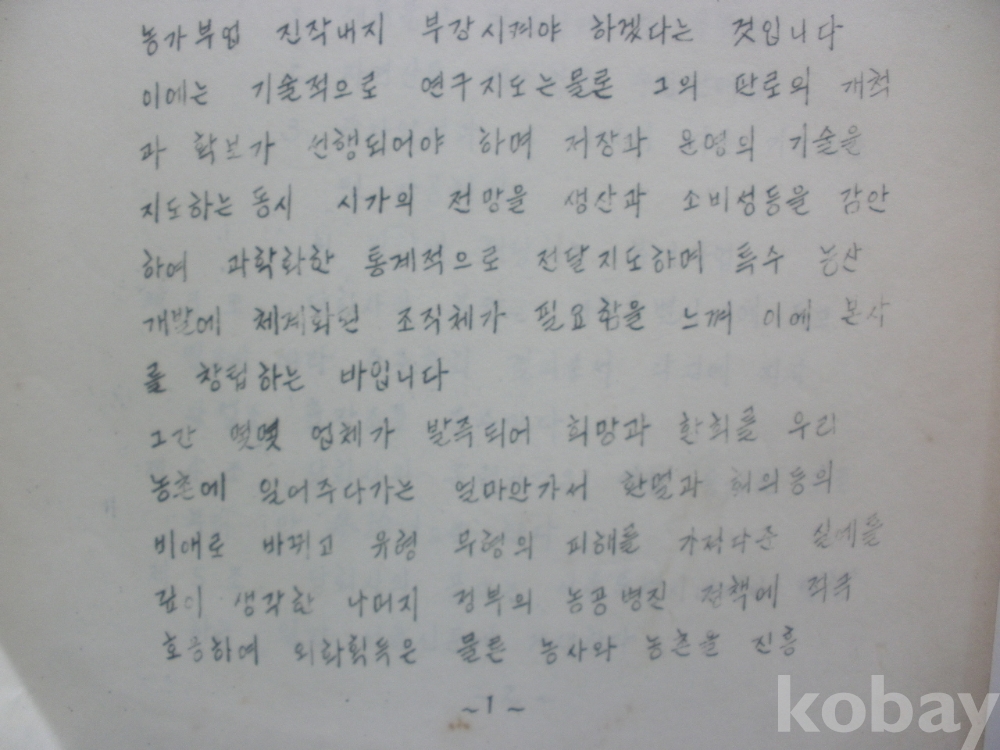 농가부업 진작내지 부강시켜야 하겠다는 것입니다
이에는 기술적으로 연구지도는물론 그의 판로의 개척
과 확보가 선행되어야 하며 저장과 운영의 기술을
지도하는동시 시가의 전망을 생산과 소비성등을 감안
하여 과학화한 통계적으로 전달지도하며 특수 농산
개발에 체계화된 조직체가 필요함을 느껴 이에 본사
를 창립하는 바입니다
그간 몇몇 업체가 발족되어 희망과 환희를 우리
농촌에 심어주다가는 얼마안가서 환멸과 회의등의
비애로 바뀌고 유형 무형의 피해를 가져다준 실예를
깊이 생각한 나머지 정부의 농공병진 정책에 적극
호응하여 외화획득은 물론 농사와 농촌을 진흥
~ 1 ~
kobay